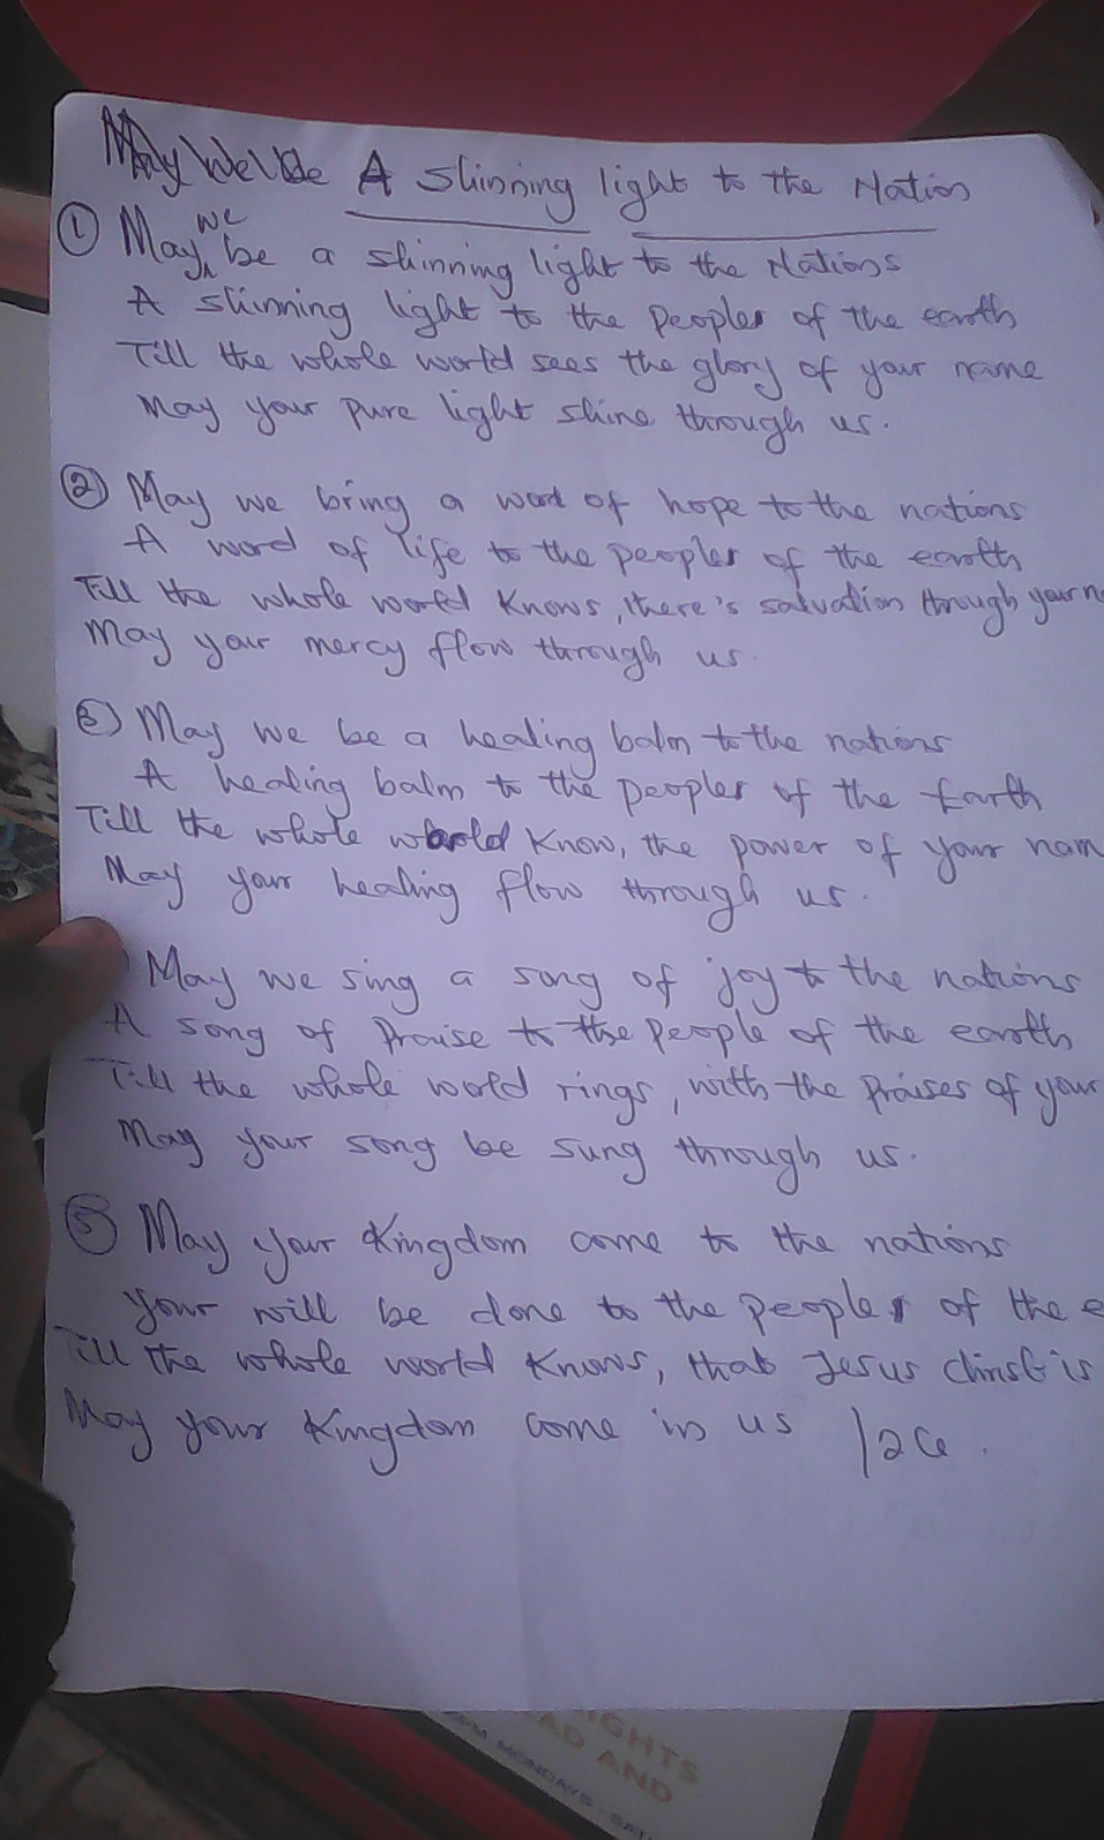 May We Be A Shinning light to the Nation
① May we be a shinning light to the Nations
A shinning light to the Peoples of the earth
Till the whole world sees the glory of your name
May your pure light shine through us.
② May we bring a word of hope to the nations
A word of life to the peoples of the earth
Till the whole world Knows, there's salvation through your n
May your mercy flow through us.
③ May we be a healing balm to the nations
A healing balm to the peoples of the Earth
Till the whole world Know, the power of your nam
May your healing flow through us.
May we sing a song of joy to the nations
A song of Praise to the People of the earth
Till the whole world rings, with the Praises of your
May your song be sung through us.
⑤ May your Kingdom come to the nations
your will be done to the peoples of the e
Till the whole world Knows, that Jesus Christ is
May your Kingdom come in us
IGHTS
AD AND
PM MONDAYS - SAT